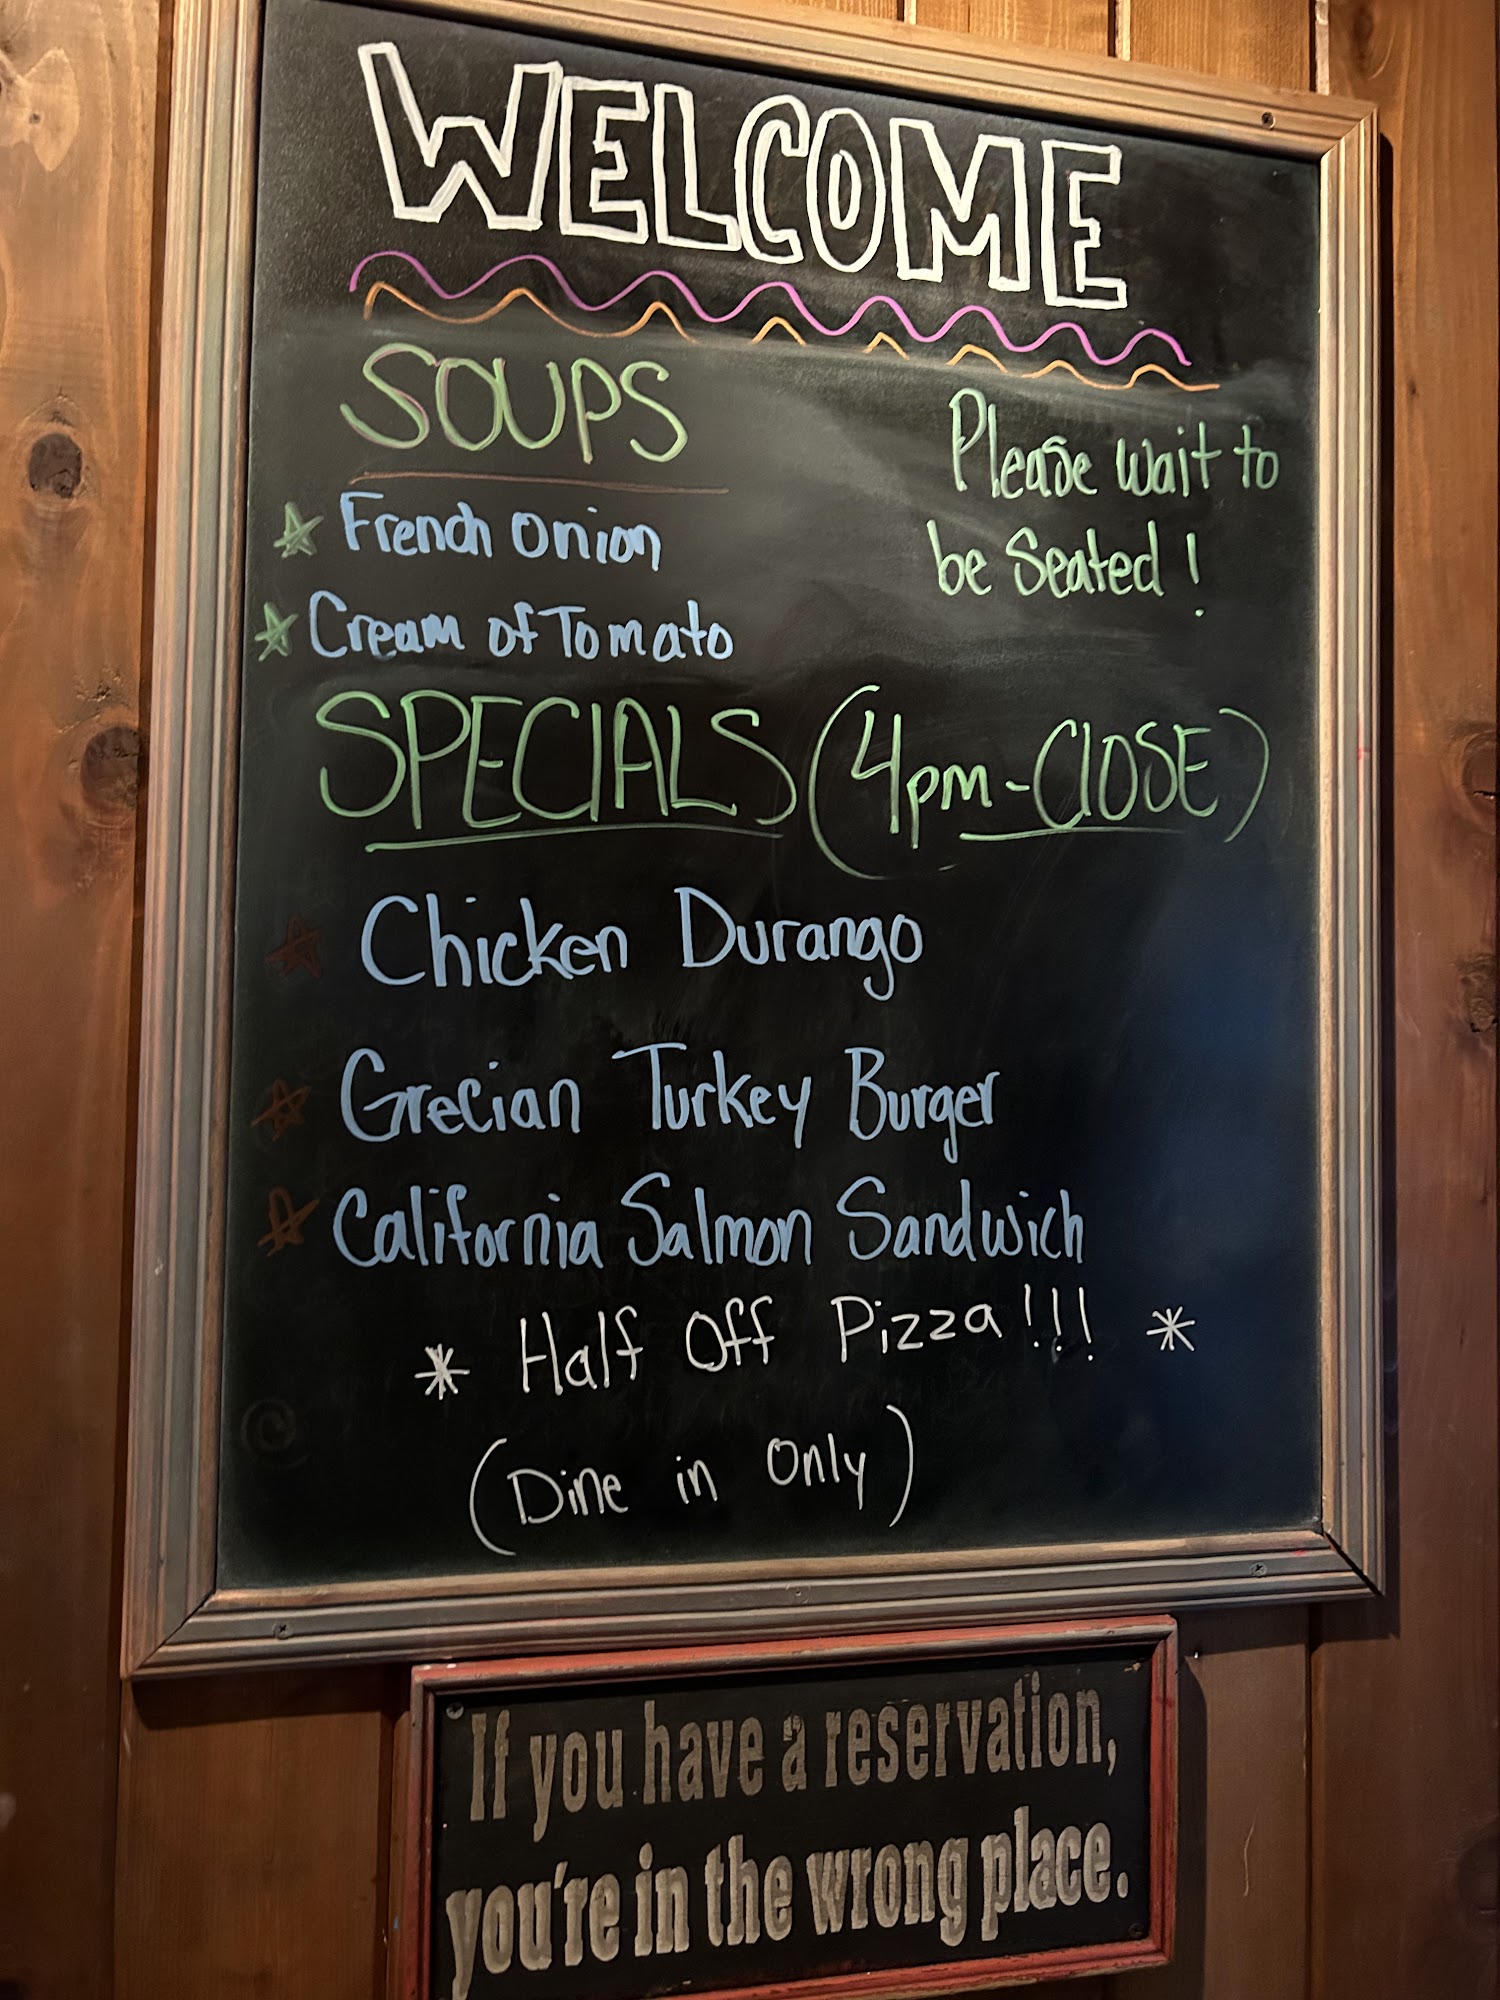 WELCOME
SOUPS
French Onion
Cream of Tomato
Please wait to
be Seated!
SPECIALS (4pm-CLOSE)
Chicken Durango
Grecian Turkey Burger
California Salmon Sandwich
* Half Off Pizza!!! *
(Dine in Only)
If you have a reservation,
you're in the wrong place.